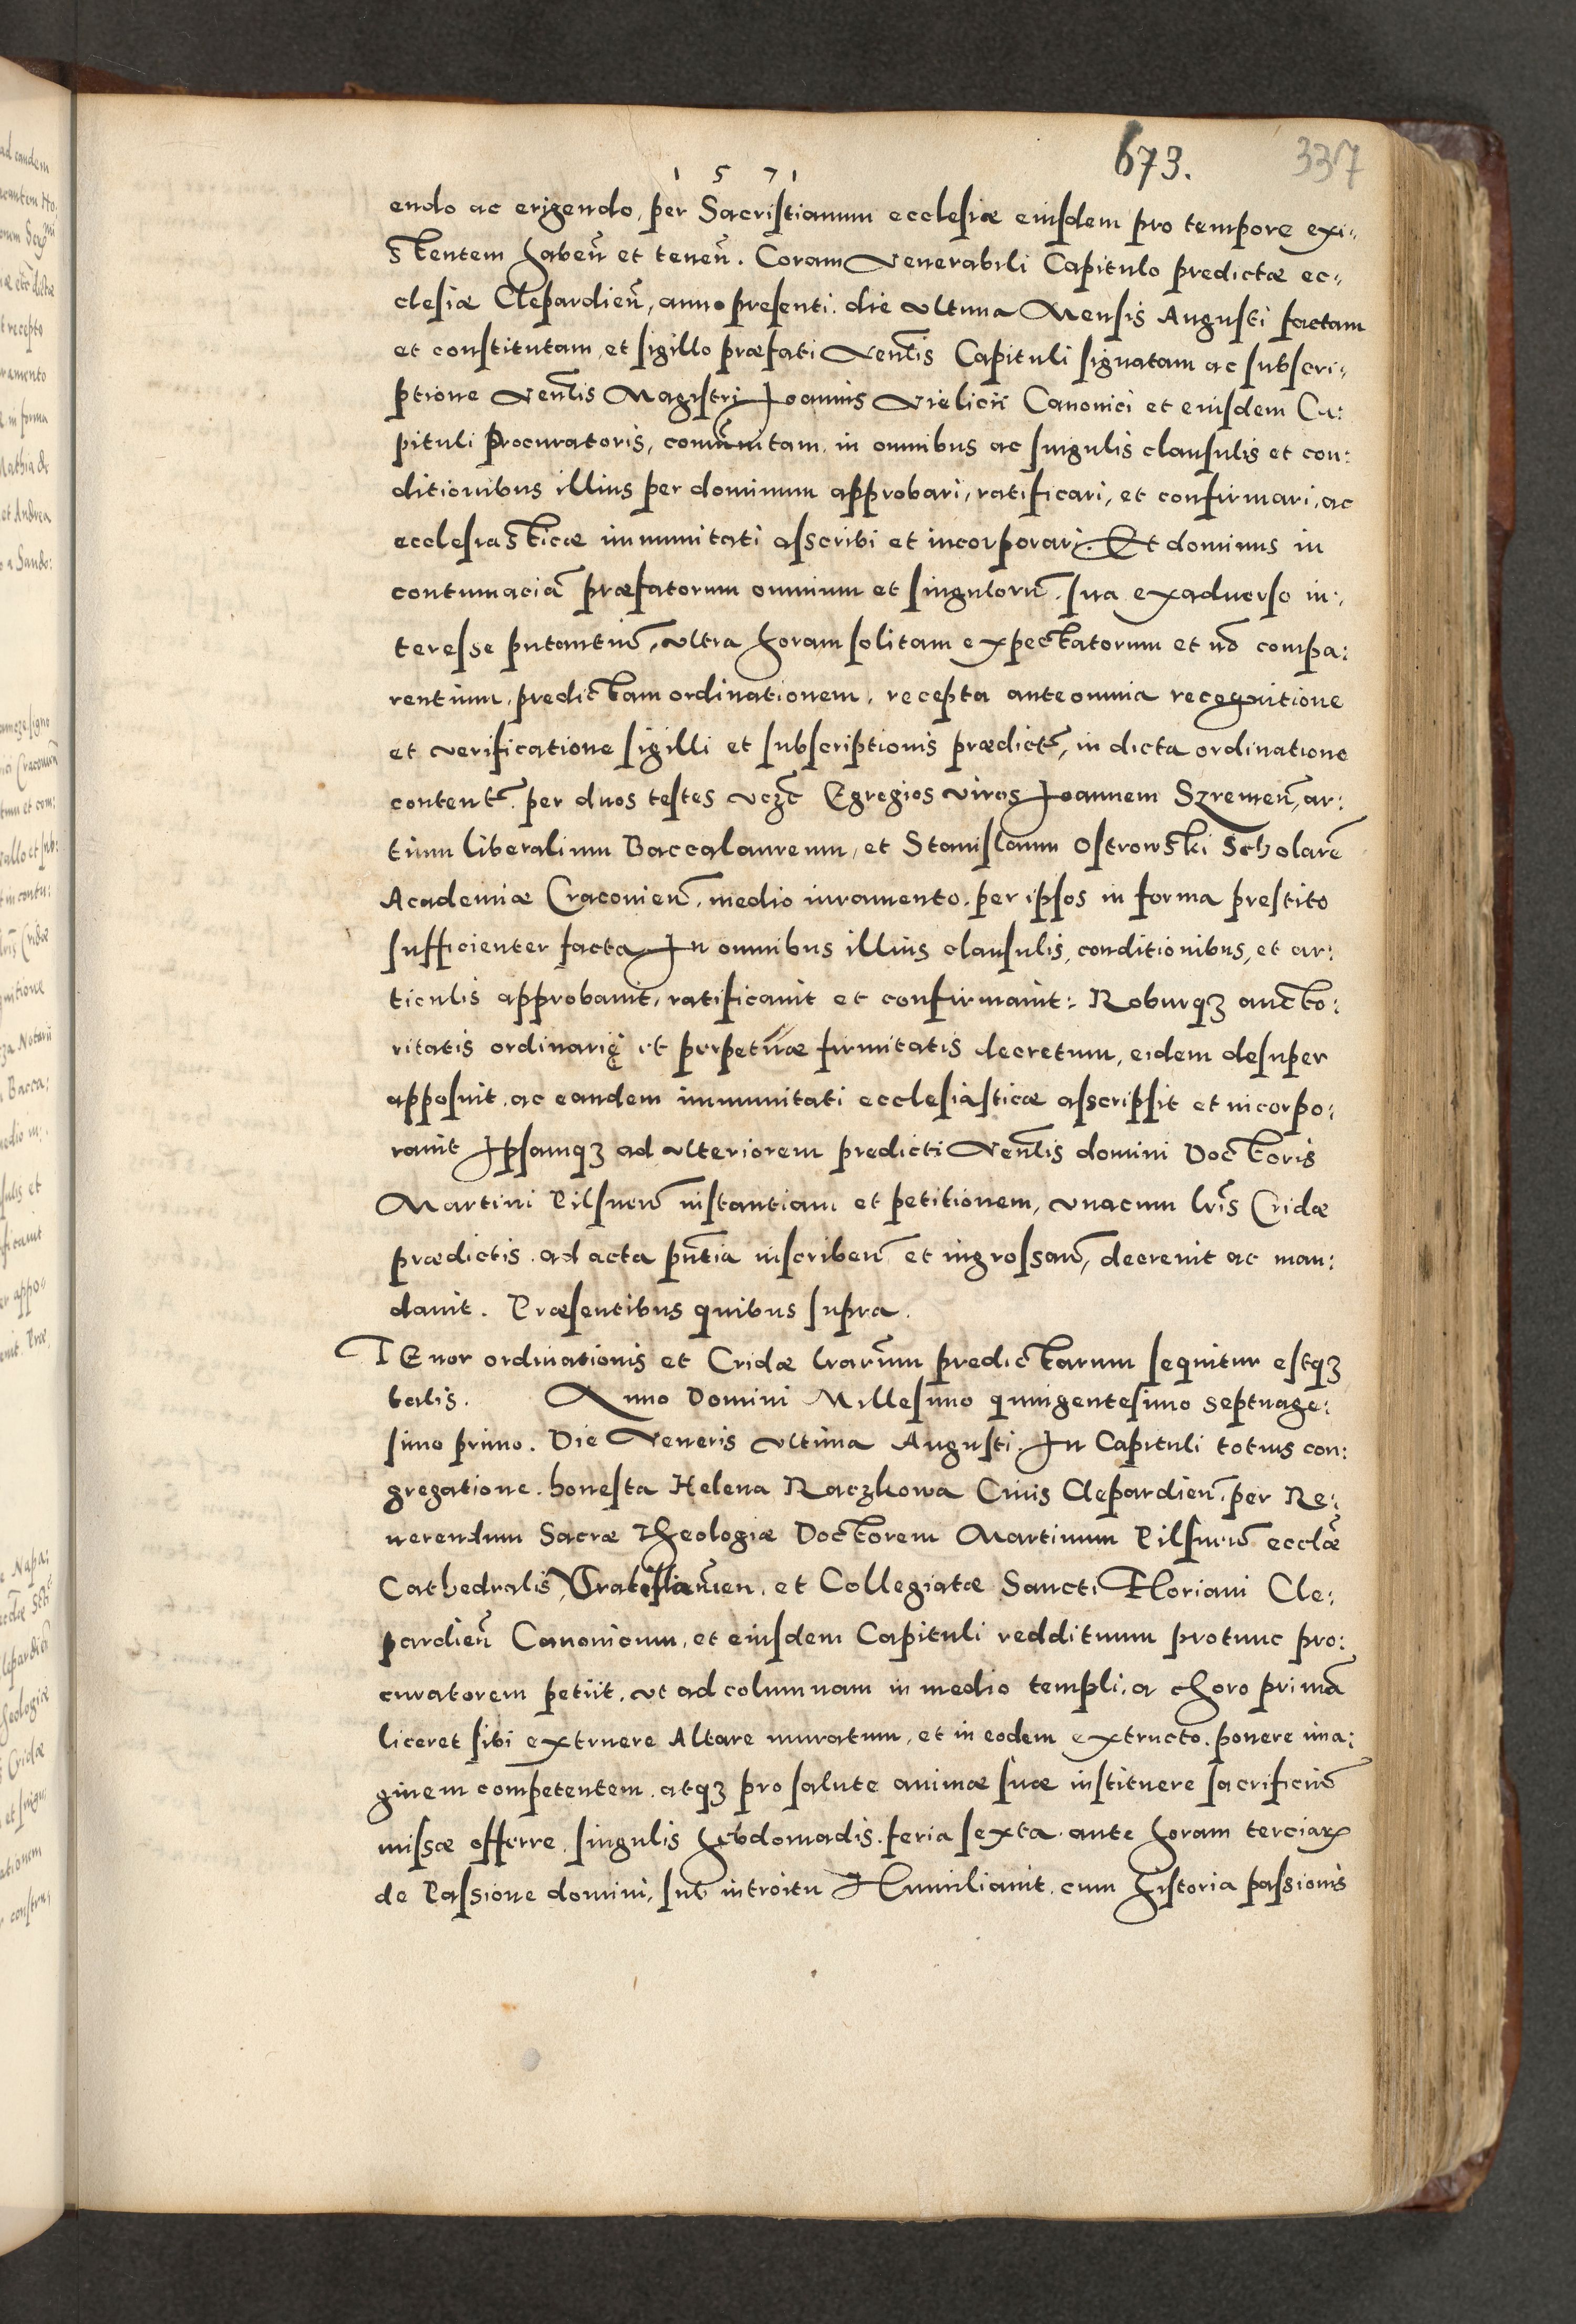 1571
673.
337
endo ac erigendo, per Sacristianum ecclesiæ eiusdem pro tempore exi:
stentem habeñ et teneñ. Coram Venerabili Capitulo predictæ ec:
clesiæ Clepardieñ, anno presenti. die vltima Mensis Augusti factam
et constitutam, et sigillo præfati Venłis Capituli signatam ac subscri:
ptione Venłis Magistri Joannis Vielicii Canonici et eiusdem Ca:
pituli Procuratoris, comunitam. in omnibus ac singulis clausulis et con:
ditionibus illius per dominum approbari, ratificari, et confirmari, ac
ecclesiasticæ immunitati asscribi et incorporari. Et dominus in
contumaciã præfatorum omnium et singulorũ. sua exaduerso in:
teresse putantiũ, vltra horam solitam expectatorum et nõ compa:
rentium, predictam ordinationem, recepta ante omnia recognitione
et verificatione sigilli et subscriptionis prædict̃, in dicta ordinatione
content̃. per duos testes vczt̃ Egregios viros Joannem Szremeñ, ar:
tium liberalium Baccalaureum, et Stanislaum Ostrowski Scholarẽ
Academiæ Cracovieñ. medio iuramento. per ipsos in forma prestito
sufficienter facta. In omnibus illius clausulis, conditionibus, et ar:
ticulis approbauit, ratificauit et confirmauit: Roburqꝫ aucto:
ritatis ordinarię et perpetuæ firmitatis decretum, eidem desuper
apposuit. ac eandem immunitati ecclesiasticæ asscripsit et incorpo:
rauit Ipsamqꝫ ad vlteriorem predicti Venłis domini Doctoris
Martini Pilsneñ instantiam et petitionem, vnacum lris̃ Cridæ
prædictis. ad acta pñtia inscribeñ et ingrossañ, decreuit ac man:
dauit. Præsentibus quibus supra.
TEnor ordinationis et Cridæ lrarũm predictarum sequitur estqꝫ
talis. Anno Domini Millesimo quingentesimo septuage:
simo primo. Die Veneris vltima Augusti. In Capituli totius con:
gregatione. honesta Helena Raczkowa Ciuis Clepardieñ. per Re:
uerendum Sacræ Theologiæ Doctorem Martinum Pilsneñ ecclæ̃
Cathedralis Vratislauien. et Collegiatæ Sancti Floriani Cle:
pardieñ Canonicum, et eiusdem Capituli reddituum protunc pro:
curatorem petiit. vt ad columnam in medio templi, a choro primã
liceret sibi extruere Altare muratum, et in eodem extructo. ponere ima:
ginem competentem. atqꝫ pro salute animæ suæ instituere sacrificiũ
missæ offerre. singulis hebdomadis. feria sexta. ante horam terciaꝝ
de Passione domini. sub introitu Humiliauit. cum historia passionis